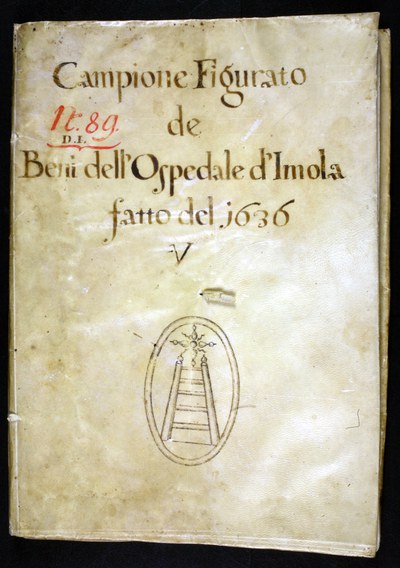 Campione Figurato
1t. 89.
de
D.I.
Beni dell'Ospedale d'Imola
fatto del 1636
V